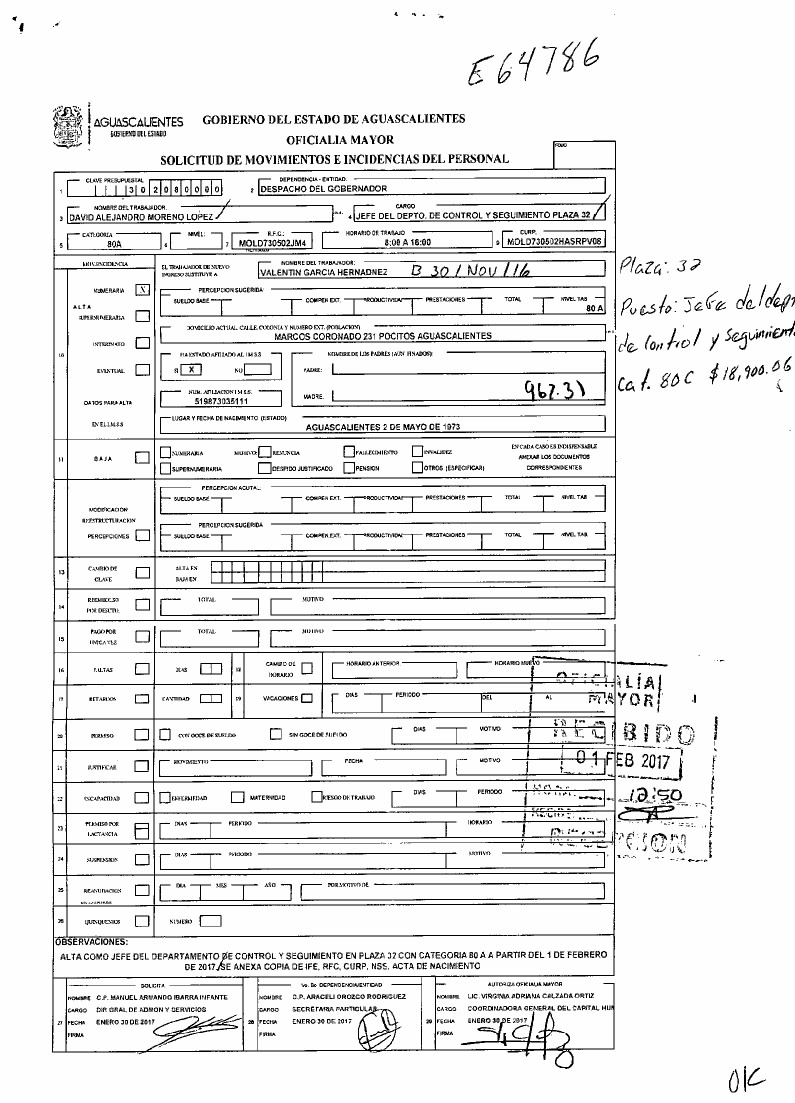 E64786
AGUASCALIENTES
GOBIERNO DEL ESTADO
GOBIERNO DEL ESTADO DE AGUASCALIENTES
OFICIALIA MAYOR
SOLICITUD DE MOVIMIENTOS E INCIDENCIAS DEL PERSONAL
FOLIO
CLAVE PRESUPUESTAL DEPENDENCIA - ENTIDAD.
1 3 0 2 0 8 0 0 0 0 2 DESPACHO DEL GOBERNADOR
NOMBRE DEL TRABAJADOR. CARGO
3 DAVID ALEJANDRO MORENO LOPEZ 4 JEFE DEL DEPTO. DE CONTROL Y SEGUIMIENTO PLAZA 32
CATEGORIA NIVEL: R.F.C.: HORARIO DE TRABAJO CURP.
5 80A 6 7 MOLD730502JM4 8:00 A 16:00 9 MOLD730502HASRPV08
MOV/INCIDENCIA EL TRABAJADOR DE NUEVO INGRESO SUSTITUYE A NOMBRE DEL TRABAJADOR:
VALENTIN GARCIA HERNADNEZ B 30/NOV/16
Plaza: 32
NUMERARIA X PERCEPCION SUGERIDA
SUELDO BASE COMPEN EXT. PRODUCTIVIDAD PRESTACIONES TOTAL NIVEL TAB
80 A
Puesto: Jefe del dep
ALTA
SUPERNUMERARIA
DOMICILIO ACTUAL. CALLE, COLONIA Y NUMERO EXT. (POBLACION)
MARCOS CORONADO 231 POCITOS AGUASCALIENTES
de Control y Seguimient
INTERINATO
10
HA ESTADO AFILIADO AL I M S S NOMBRE DE LOS PADRES (AÚN FINADOS)
EVENTUAL SI X NO PADRE:
Cat. 80C $18,900.06
NUM. AFILIACION I M S S. MADRE. 967.31
DATOS PARA ALTA 519873035111
EN EL I.M.S.S LUGAR Y FECHA DE NACIMIENTO (ESTADO)
AGUASCALIENTES 2 DE MAYO DE 1973
11 BAJA NUMERARIA MOTIVO: RENUNCIA FALLECIMIENTO INVALIDEZ EN CADA CASO ES INDISPENSABLE
ANEXAR LOS DOCUMENTOS
SUPERNUMERARIA DESPIDO JUSTIFICADO PENSION OTROS (ESPECIFICAR) CORRESPONDIENTES
PERCEPCION ACUTA...
SUELDO BASE COMPEN EXT. PRODUCTIVIDAD PRESTACIONES TOTAL NIVEL TAB
MODIFICACION
REESTRUCTURACION
PERCEPCIONES
PERCEPCION SUGERIDA
SUELDO BASE COMPEN EXT. PRODUCTIVIDAD PRESTACIONES TOTAL NIVEL TAB.
13 CAMBIO DE CLAVE ALTA EN
BAJA EN
14 REEMBOLSO POR DESCTO. TOTAL MOTIVO
15 PAGO POR UNICA VEZ TOTAL MOTIVO
16 FALTAS DIAS 18 CAMBIO DE HORARIO HORARIO ANTERIOR HORARIO NUEVO
OFICIALIA
17 RETARDOS CANTIDAD 19 VACACIONES DIAS PERIODO DEL AL
MAYOR
20 PERMISO CON GOCE DE SUELDO SIN GOCE DE SUELDO DIAS MOTIVO
RECIBIDO
21 JUSTIFICAR MOVIMIENTO FECHA MOTIVO
01 FEB 2017
22 INCAPACIDAD ENFERMEDAD MATERNIDAD RIESGO DE TRABAJO DIAS PERIODO
12:50
23 PERMISO POR LACTANCIA DIAS PERIODO HORARIO
24 SUSPENSION DIAS PERIODO MOTIVO
25 REANUDACION DIA MES AÑO POR MOTIVO DE
26 QUINQUENIOS NUMERO
OBSERVACIONES:
ALTA COMO JEFE DEL DEPARTAMENTO DE CONTROL Y SEGUIMIENTO EN PLAZA 02 CON CATEGORIA 80 A A PARTIR DEL 1 DE FEBRERO
DE 2017/SE ANEXA COPIA DE IFE, RFC, CURP, NSS. ACTA DE NACIMIENTO
SOLICITA Vo. Bo DEPENDENCIA/ENTIDAD AUTORIZA OFICIALIA MAYOR
NOMBRE C.P. MANUEL ARMANDO IBARRA INFANTE NOMBRE C.P. ARACELI OROZCO RODRIGUEZ NOMBRE. LIC. VIRGINIA ADRIANA CALZADA ORTIZ
CARGO DIR GRAL DE ADMON Y SERVICIOS CARGO SECRETARIA PARTICULAR CARGO COORDINADORA GENERAL DEL CAPITAL HUM
27 FECHA ENERO 30 DE 2017 28 FECHA ENERO 30 DE 2017 29 FECHA ENERO 30 DE 2017
FIRMA FIRMA FIRMA
OK